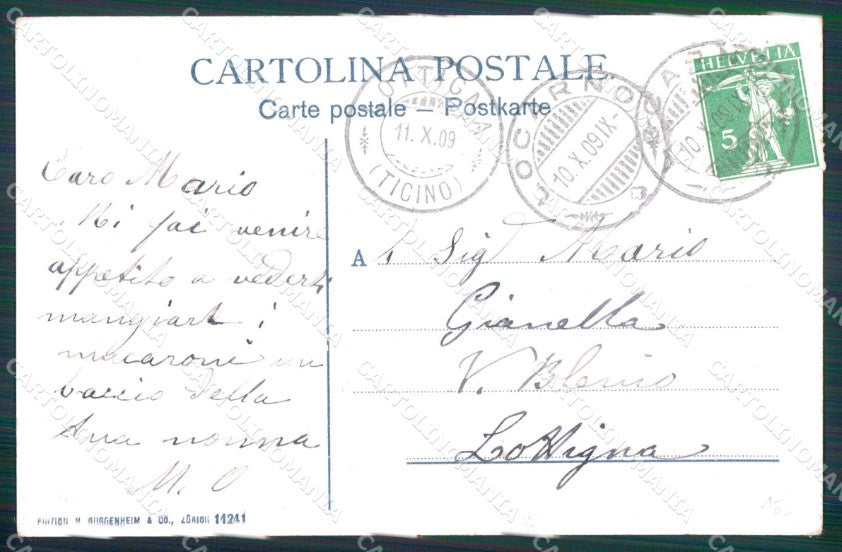 CARTOLINA POSTALE
Carte postale — Postkarte
LOTTIGNA
11. X. 09
(TICINO)
LOCARNO
10.X.09.IX-
HELVETIA
5
Caro Mario
Mi fai venire
appetito a vederti
mangiart i
macaroni un
baccio della
tua nonna
M. O
A
Sigr Mario
Gianella
V. Blenio
Lottigna
EDITION H. GUGGENHEIM & CO., ZÜRICH 11241
CARTOLINOMANIA